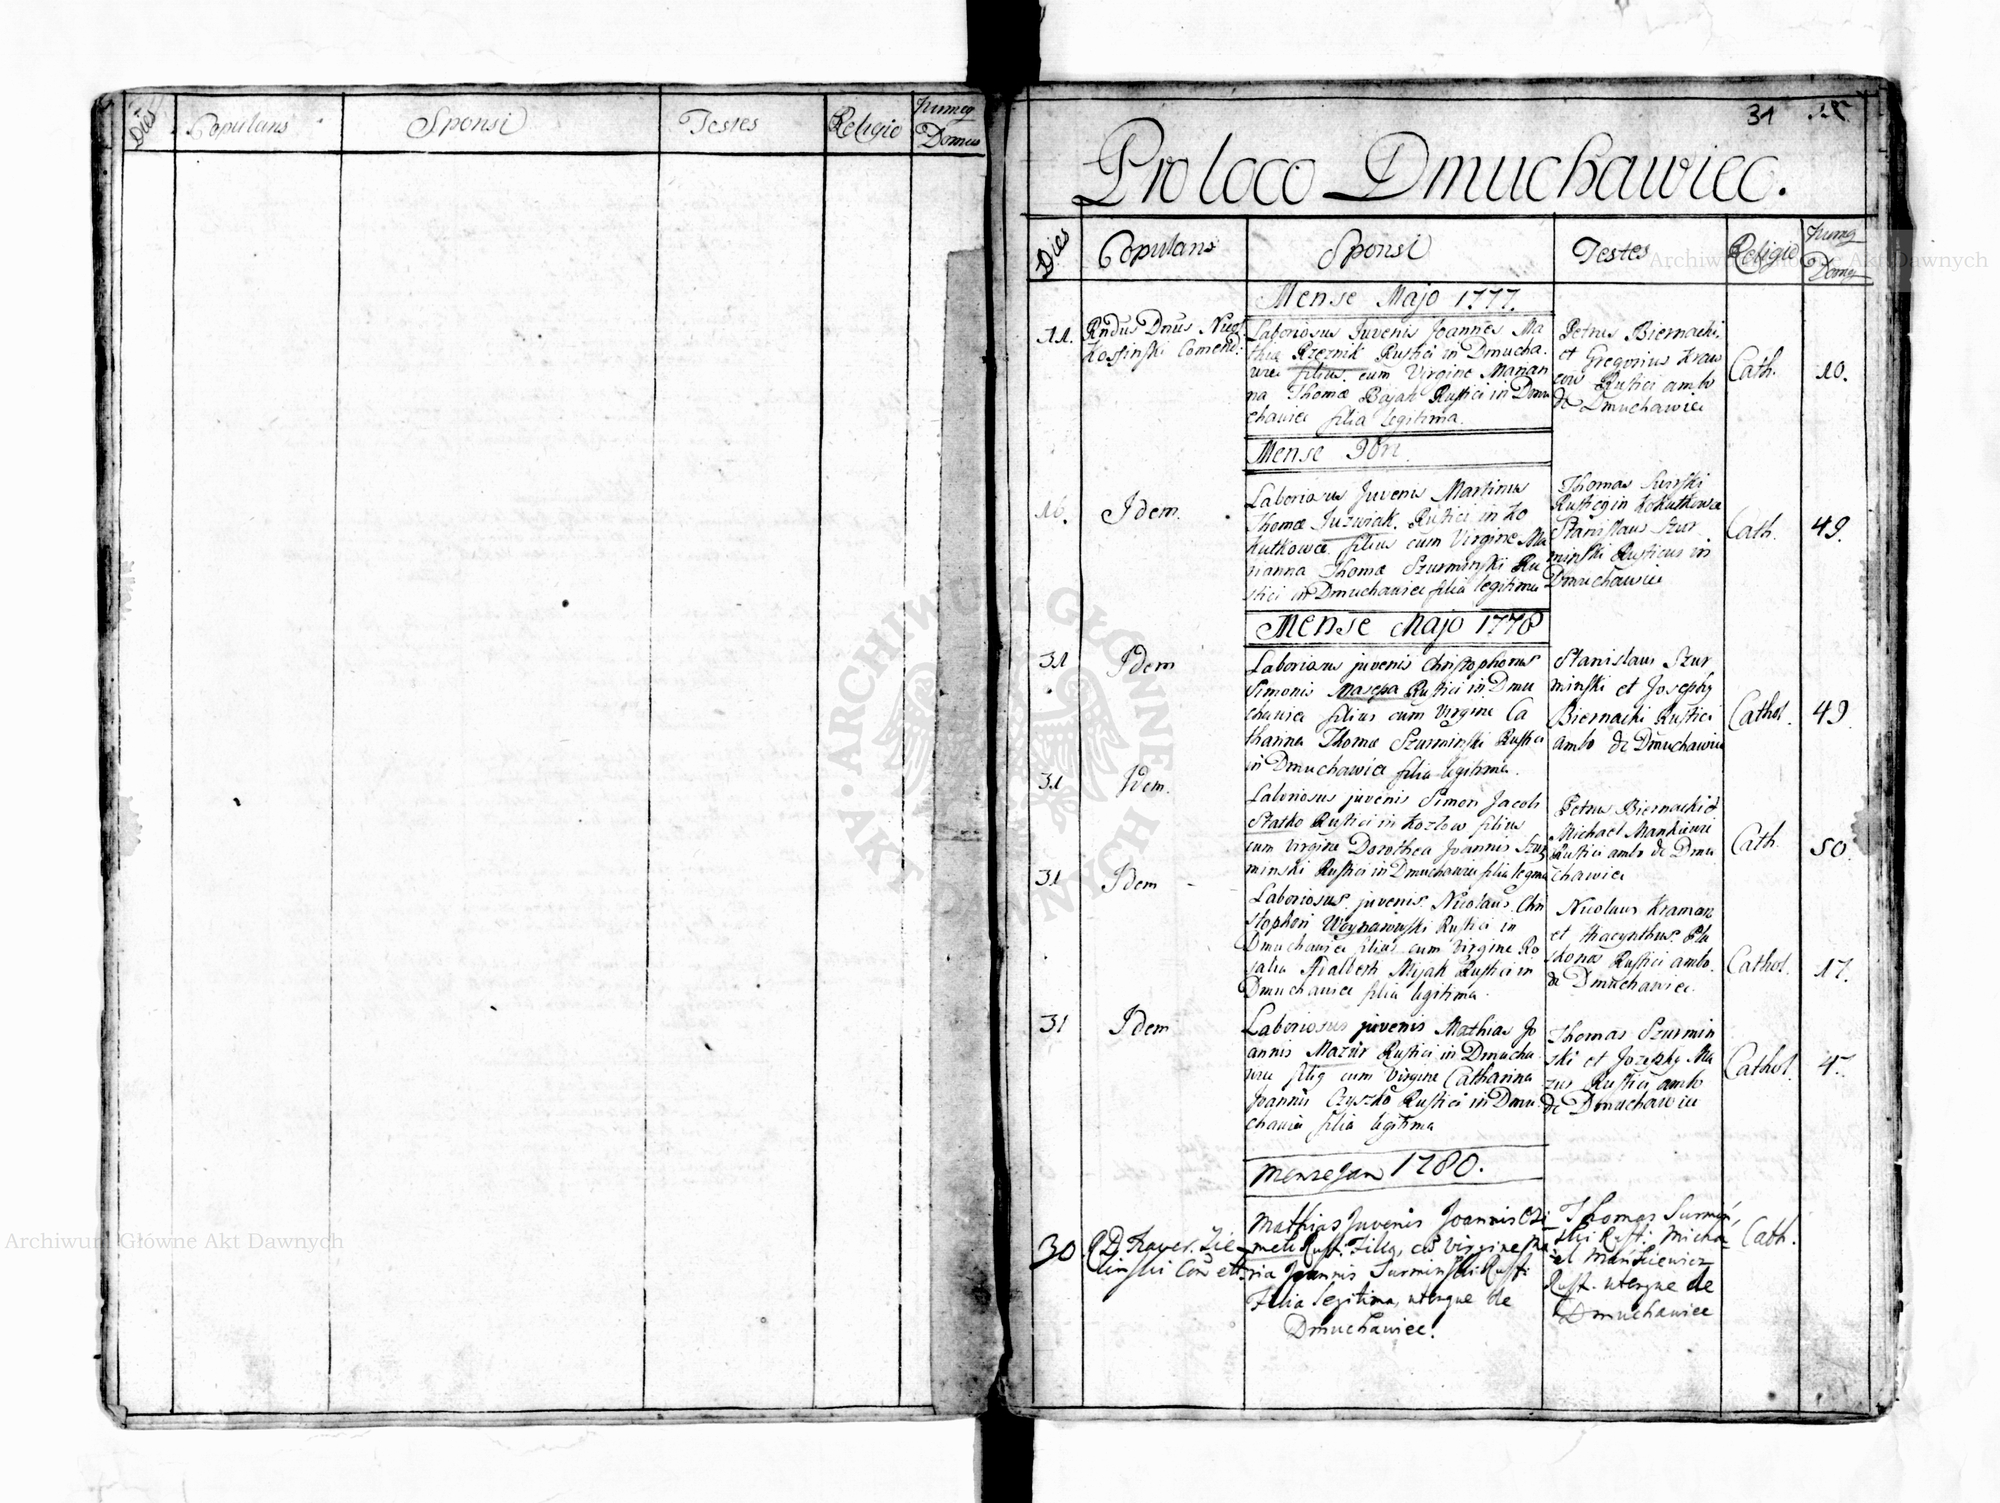 Dies
Copulans
Sponsi
Testes
Religio
Numeq
Domus
31
Pro loco Dmuchawiec.
Dies
Copulans
Sponsi
Testes
Religio
Numq
Domq
Mense Majo 1777.
11.
Rndus Dnus Nicol
Kossinski Comend.
Laboriosus Juvenis Joannes Ma
thiæ Rzeznik Rustici in Dmucha
wiec filius cum Virgine Marian
na Thomæ Bajak Rustici in Dmu
chawiec filia legitima.
Petrus Biernacki
et Gregorius Kraw
Rustici ambo
de Dmuchawiec
Cath.
10.
Mense 9bri.
16.
Idem.
Laboriosus Juvenis Martinus
Thomæ Juzwiak Rustici in Ko
kutkowce filius cum Virgine Ma
rianna Thomæ Szurminski Ru
stici in Dmuchawiec filia legitima
Thomas
in Kokutkowce
Stanislaus Szur
minski Rusticus in
Dmuchawiec
Cath.
49.
Mense Majo 1778
31
Idem
Laboriosus juvenis Christophorus
Simonis Masepa Rustici in Dmu
chawiec filius cum Virgine Ca
tharina Thomæ Szurminski Rustici
in Dmuchawiec filia legitima.
Stanislaus Szur
minski et Josephq
Biernacki Rustici
ambo de Dmuchawiec
Cathol.
49.
31
Idem.
Laboriosus juvenis Simon Jacobi
Statko Rustici in Kozlow filius
cum Virgine Dorothea Joannis Szur
minski Rustici in Dmuchawiec filia legma
Petrus Biernacki et
Michael
Rustici ambo de Dmu
chawiec
Cath.
50.
31
Idem
Laboriosus juvenis Nicolaus Chri
stophori Rustici in
Dmuchawiec filius cum Virgine Ro
salia Adalberti Mijak Rustici in
Dmuchawiec filia legitima.
Nicolaus Kramarz
et Hacynthus
Rustici ambo
de Dmuchawiec.
Cathol.
17.
31
Idem
Laboriosus juvenis Mathias Jo
annis Mazur Rustici in Dmucha
wiec filiq cum Virgine Catharina
Joannis Czyszko Rustici in Dmu
chawiec filia legitima
Thomas Szurmin
ski et Jozephq Ma
zur Rustici ambo
de Dmuchawiec
Cathol.
47.
Mense Jan 1780.
30
R D. Xaver. Zie
linski
Mathias Juvenis Joannis
Rusti. Filiq, cū Virgine Ma
ria Joannis Surminski Rusti
Filia legitima, uterque de
Dmuchawiec.
Thomas Surmiń
ski Rusti. Micha
el Mańkiewicz
Rust. uterque de
Dmuchawiec
Cath.
Archiwum Główne Akt Dawnych
Archiwum Główne Akt Dawnych
ARCHIWUM GŁÓWNE AKT DAWNYCH